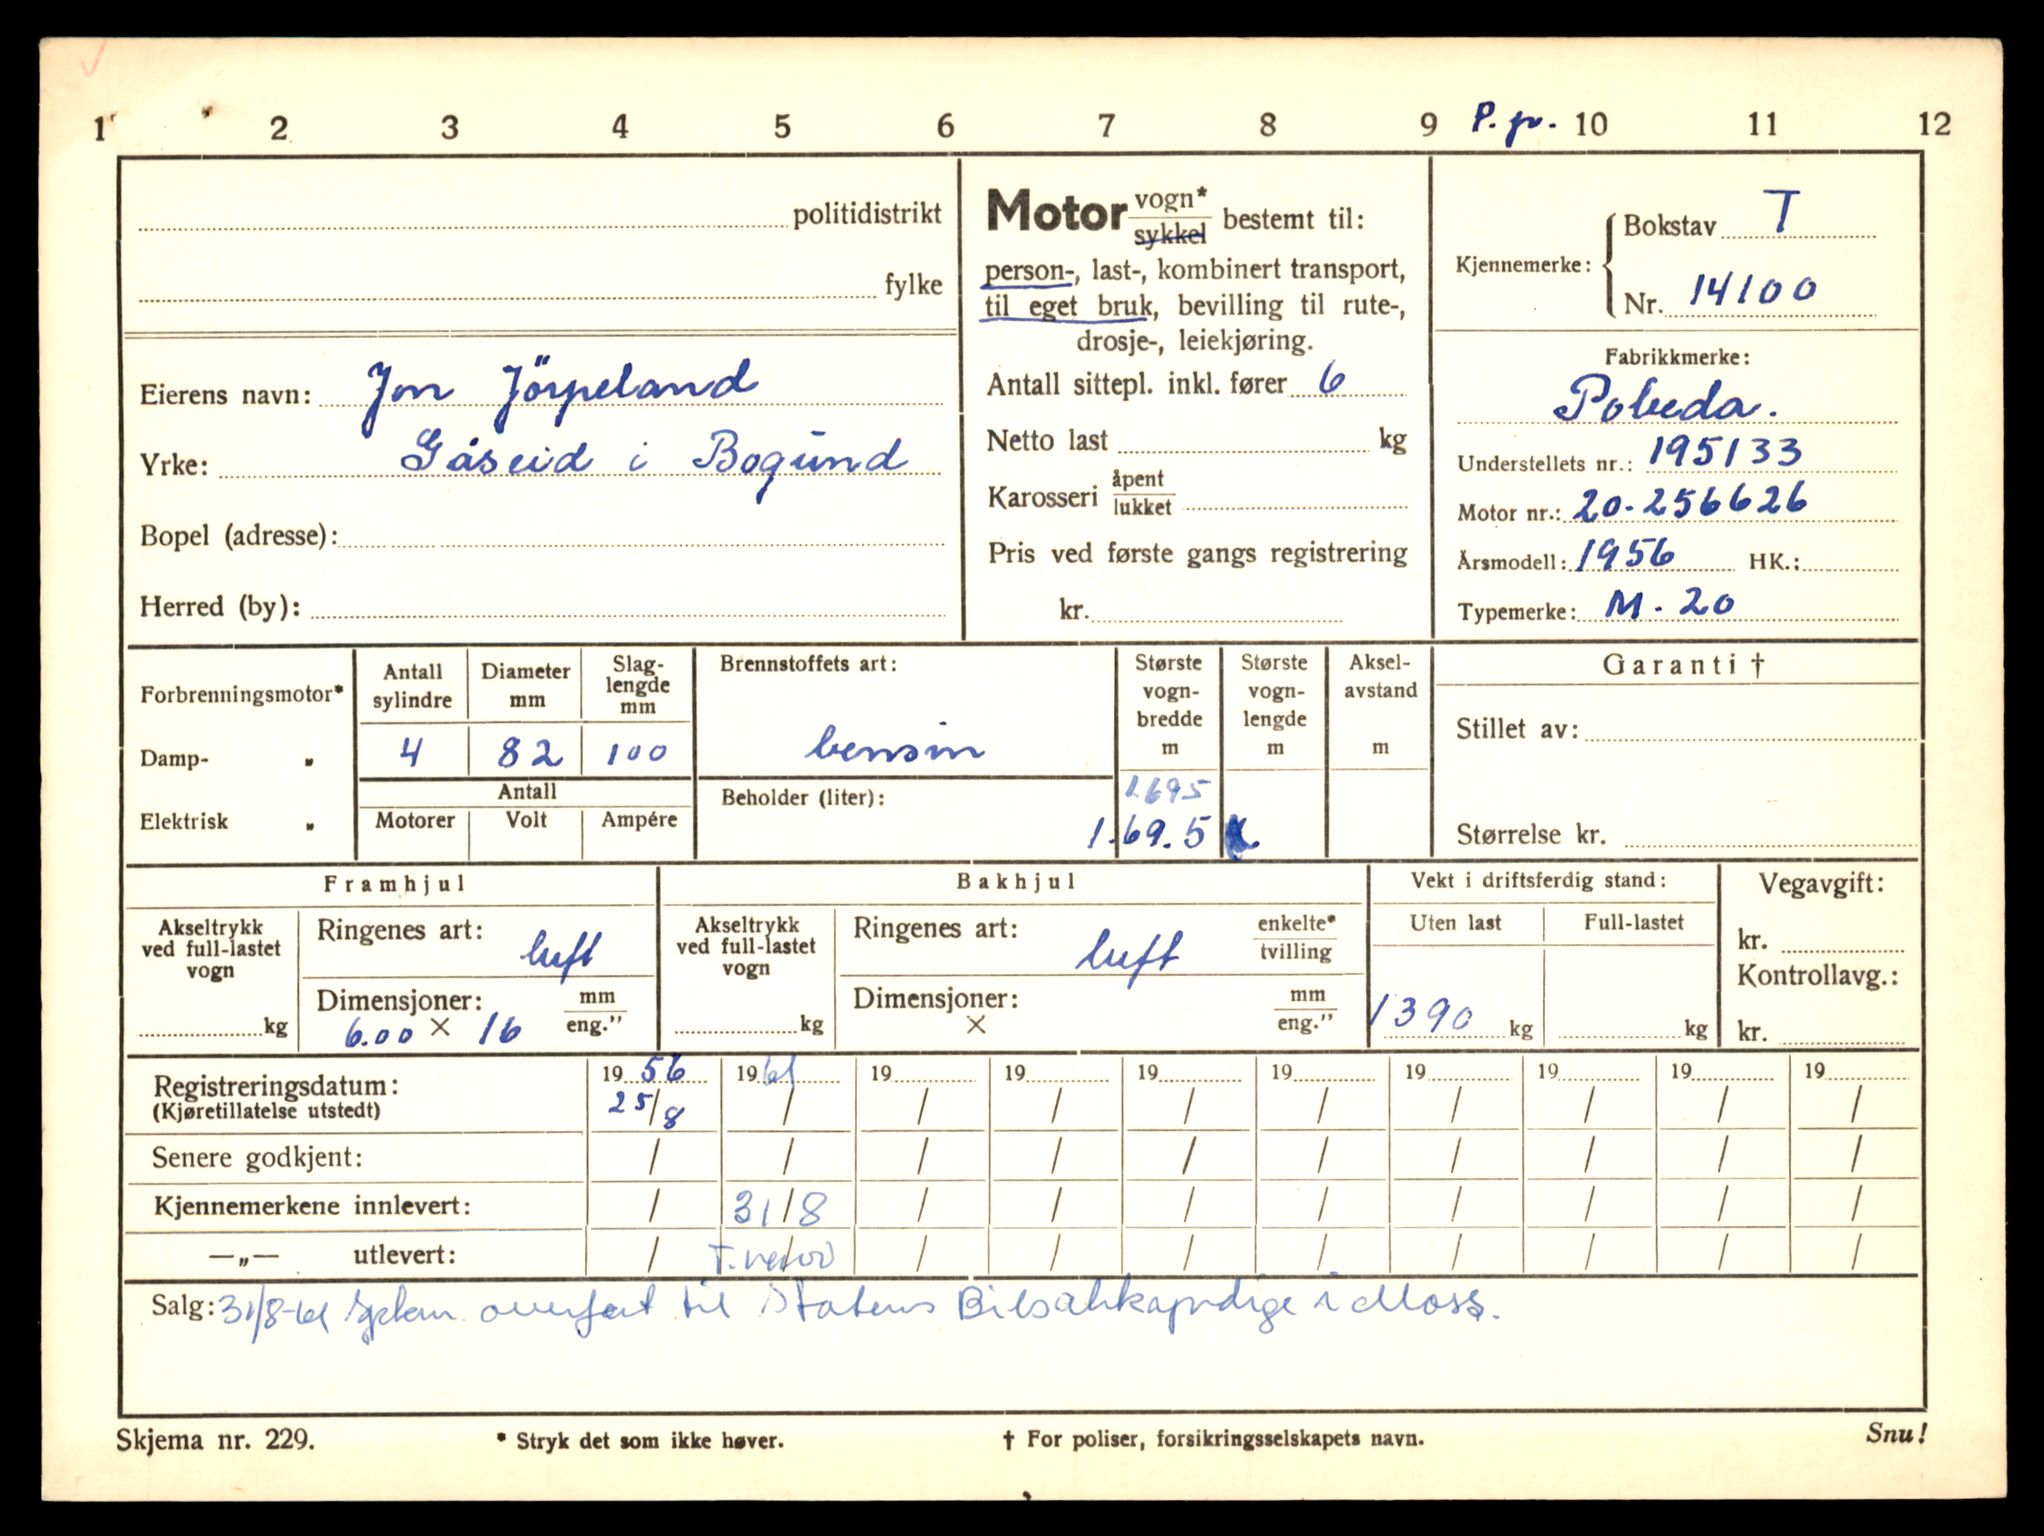 1 2 3 4 5 6 7 8 9 P. pr. 10 11 12
politidistrikt
fylke
Eierens navn: Jon Jörpeland
Yrke: Gåseid i Bogund
Bopel (adresse):
Herred (by):
Motor vogn* sykkel bestemt til:
person-, last-, kombinert transport,
til eget bruk, bevilling til rute-,
drosje-, leiekjøring.
Antall sittepl. inkl. fører 6
Netto last kg
Karosseri åpent lukket
Pris ved første gangs registrering
kr.
Kjennemerke: Bokstav T
Nr. 14100
Fabrikkmerke:
Pobeda.
Understellets nr.: 195133
Motor nr.: 20-256626
Årsmodell: 1956 HK.:
Typemerke: M-20
Forbrenningsmotor*
Damp- „
Elektrisk „
Antall sylindre
Diameter mm
Slag-lengde mm
4 82 100
Antall
Motorer Volt Ampére
Brennstoffets art:
bensin
Beholder (liter):
Største vogn-bredde m
Største vogn-lengde m
Aksel-avstand m
1.695
1.69.5
Garanti †
Stillet av:
Størrelse kr.
Framhjul
Akseltrykk ved full-lastet vogn
kg
Ringenes art: luft
Dimensjoner: mm eng."
6.00 × 16
Bakhjul
Akseltrykk ved full-lastet vogn
kg
Ringenes art: luft enkelte* tvilling
Dimensjoner: mm eng."
×
Vekt i driftsferdig stand:
Uten last Full-lastet
1390 kg kg
Vegavgift:
kr.
Kontrollavg.:
kr.
Registreringsdatum: 19 56 19 61 19 19 19 19 19 19 19 19
(Kjøretillatelse utstedt) 25/8 / / / / / / / / /
Senere godkjent: / / / / / / / / / /
Kjennemerkene innlevert: / 31/8 / / / / / / / /
—„— utlevert: / / / / / / / / / /
Salg: 31/8-61 overført til Statens Bilsakkyndige i Moss.
Skjema nr. 229. * Stryk det som ikke høver. † For poliser, forsikringsselskapets navn. Snu!